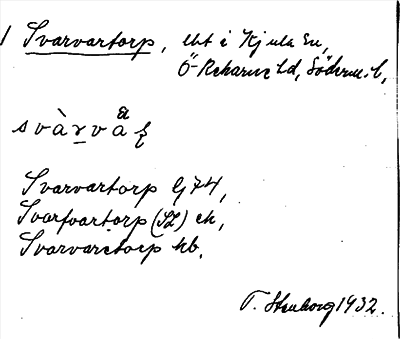 1 Svarvartorp, lht i Kjula sn,
Ö-Rekarne hd, Söderml.,
svàrvå
Svarvartorp G74,
Svarfvartorp (SL) ek,
Svarvaretorp hb.
T. Stenborg 1932.